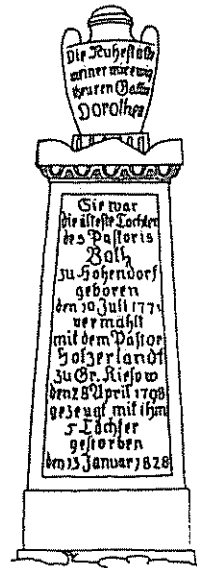 Die Ruhestatte
meiner mir ewig
theuren Gattin
Dorothea
Sie war
die älteste Tochter
des Pastoris
Balk
zu Hohendorf
geboren
den 10 Juli 1771
vermählt
mit dem Pastor
Holzerlandt
zu Gr. Kiesow
den 28 April 1798
gezeugt mit ihm
5 Töchter
gestorben
den 13 Januar 1828